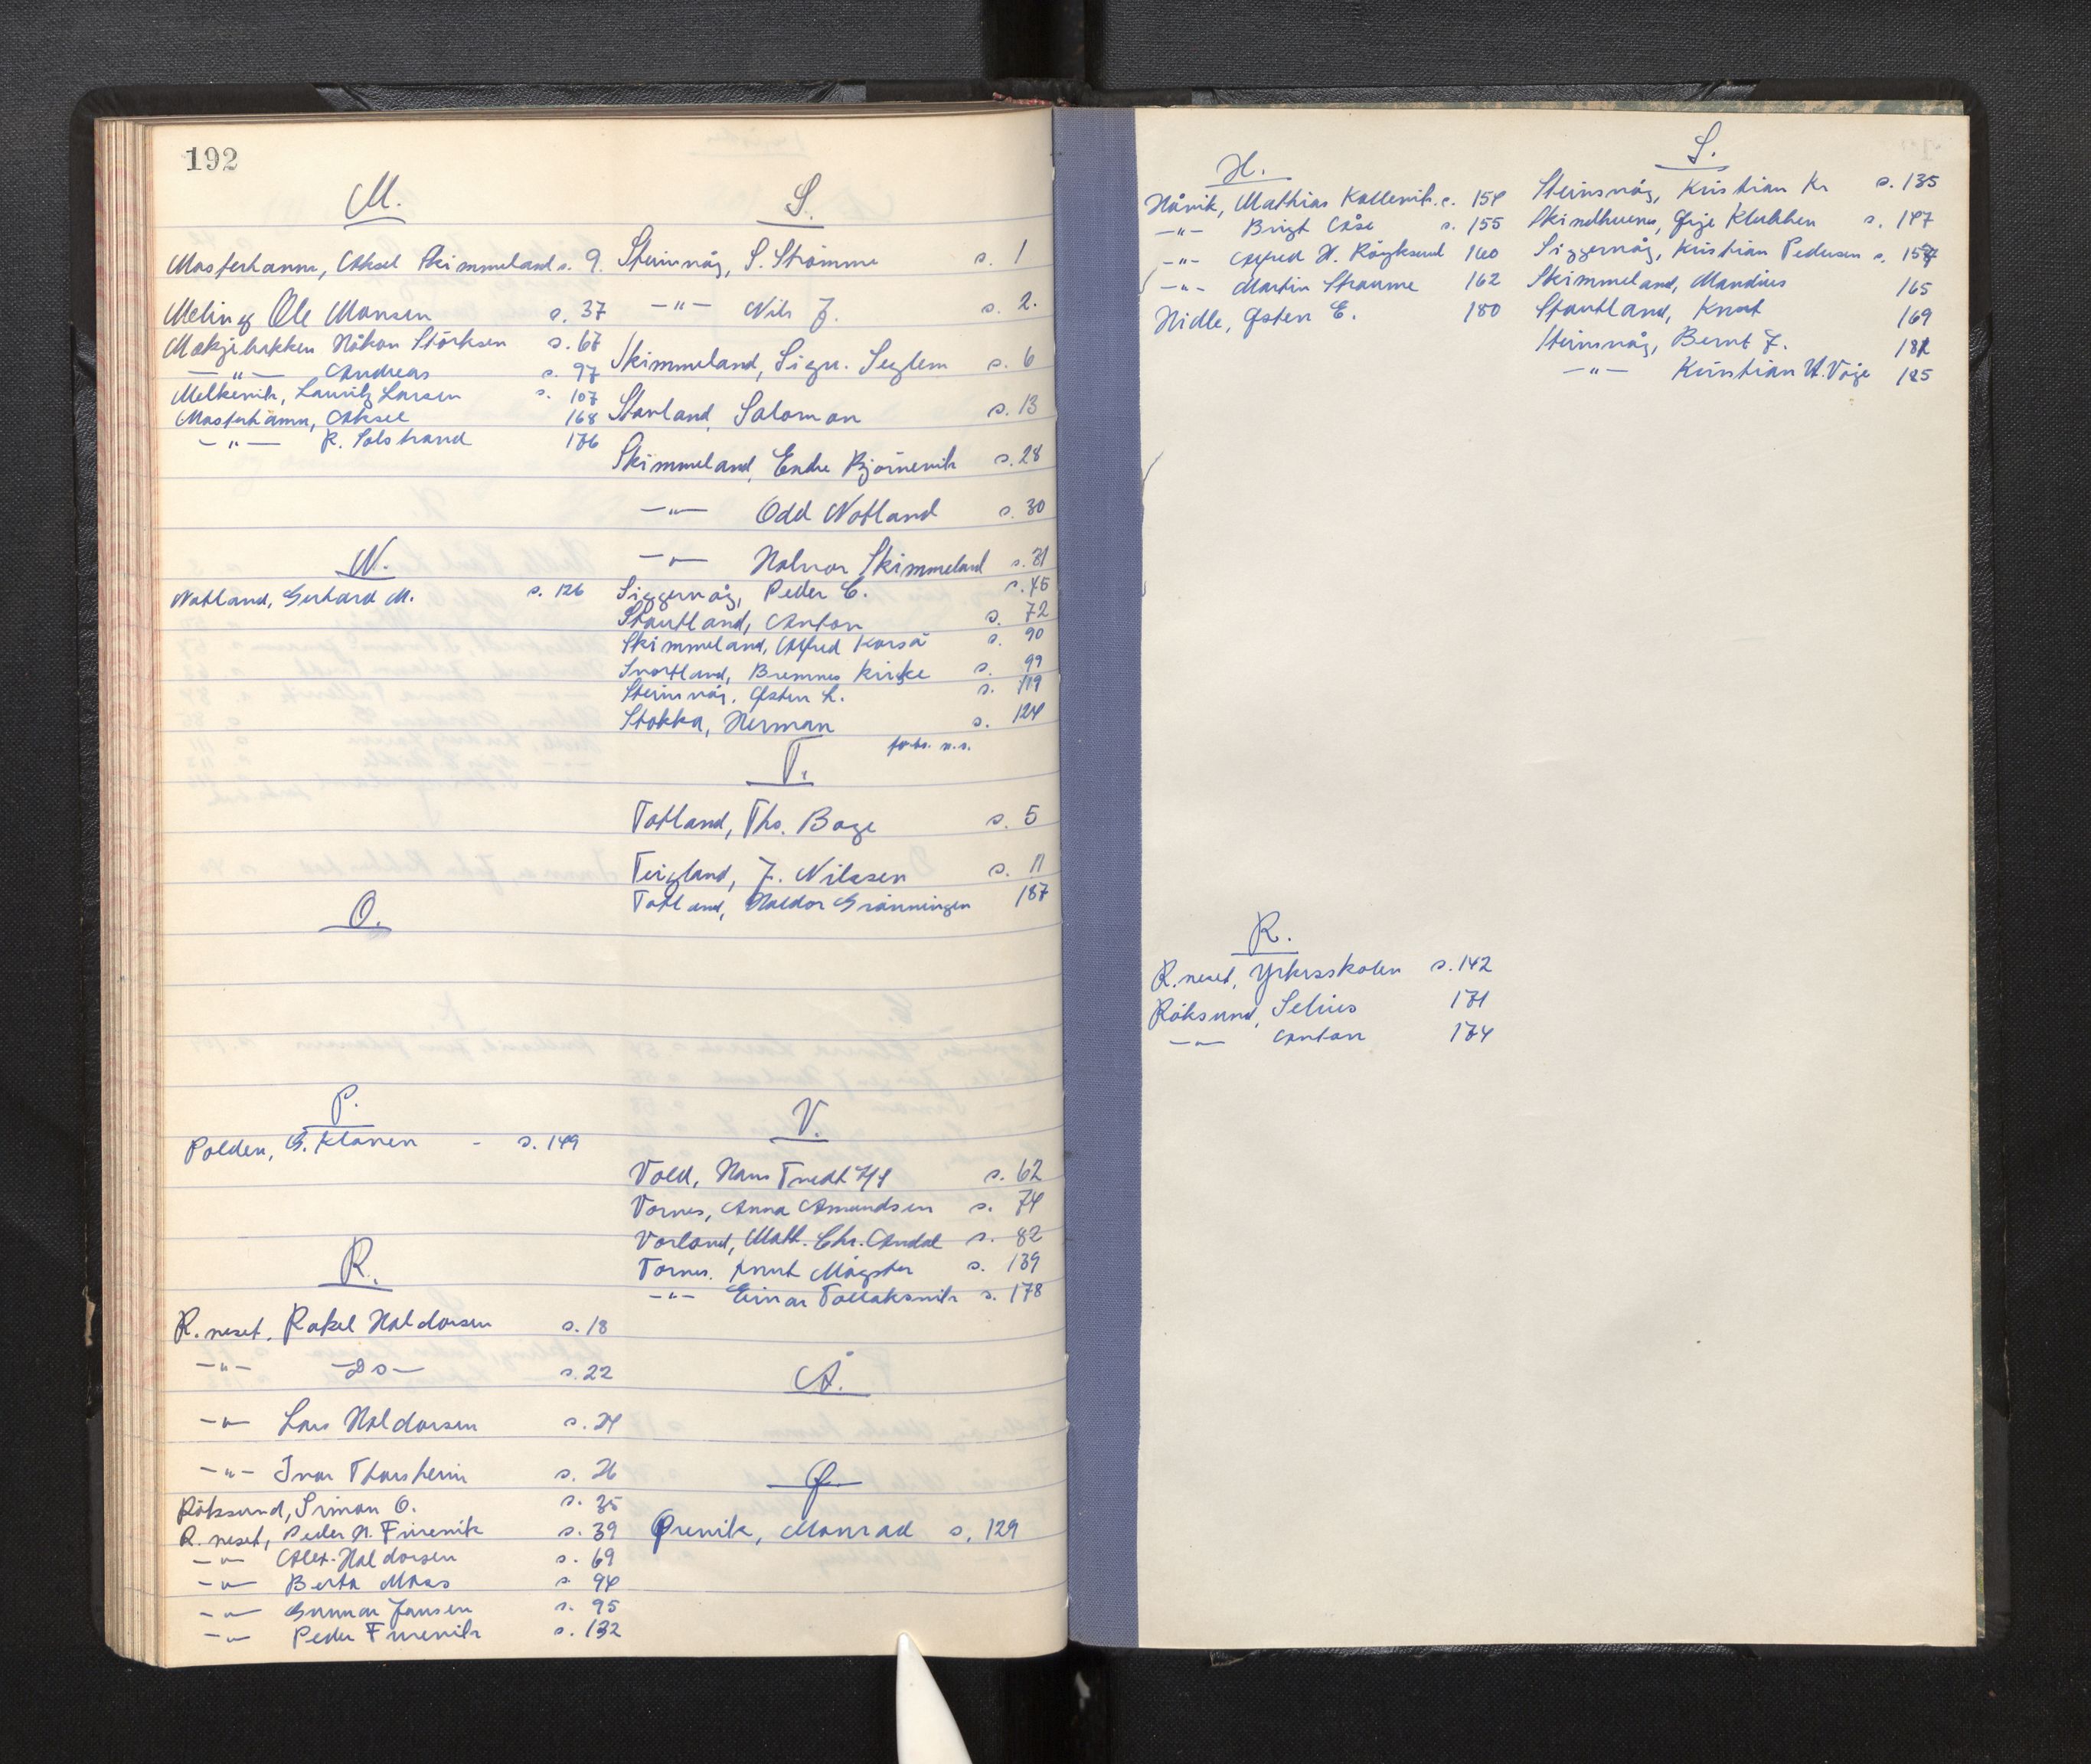 192
M.
Masterhamn, Aksel Skimmeland s. 9.
Meling Ole Monsen s. 37
Mækjebakken Håkon Störksen s. 67
—"— Andreas s. 97
Melkevik, Lauritz Larsen s. 107
Masterhamn, Aksel 168
—"— R. Solstrand 176
N.
Notland, Gerhard M. s. 126
O.
P.
Polden, G. Klaven - s. 149
R.
R.neset. Rakel Haldorsen s. 18
—"— —Do— s. 22
—"— Lars Haldorsen s. 24
—"— Ivar Thorsheim s. 26
Röksund, Simon O. s. 35
R.neset, Peder H. Furevik s. 39
—"— Alex. Haldorsen s. 69
—"— Berta Maas s. 94
—"— Gunnar Jansen s. 95
—"— Peder Furevik s. 132
S.
Steinsvåg, S. Strömme s. 1
—"— Nils J. s. 2.
Skimmeland, Sign. Seglem s. 6
Stavland, Salomon s. 13
Skimmeland, Endre Björnevik s. 28
—"— Odd Notland s. 30
—"— Halvor Skimmeland s. 31
Siggervåg, Peder E. s. 45
Stautland, Anton s. 72
Skimmeland, Alfred Korsö s. 90
Svortland, Bremnes Kirke s. 99
Steinsvåg, Østen L. s. 119
Stokka, Herman s. 124
forts. n.s.
T.
Totland, Ths. Boge s. 5
Teigland, J. Nilssen s. 11
Totland, Haldor Grönningen 187
V.
Vold, Hans Tvedt s. 62
Vornes, Anna Amundsen s. 74
Vorland, Math. Chr. Andal s. 82
Tornes. Knut Møgster s. 139
—"— Einar Tollaksvik s. 178
Å.
Ø.
Ørevik, Monrad s. 129
H.
Håvik, Mathias Kallevik. s. 154
—"— Brigt Åse s. 155
—"— Alfred H. Röyksund 160
—"— Martin Straume 162
Hidle, Østen E. 180
R.
R.neset, Yrkesskolen s. 142
Röksund, Selius 171
—"— Anton 174
S.
Steinsvåg, Kristian Kr s. 135
Klubben s. 147
Siggervåg, Kristian Pedersen s. 157
Skimmeland, Mandius 165
Stautland, Knut 169
Steinsvåg, Bernt J. 181
—"— Kristian H. Våge 185